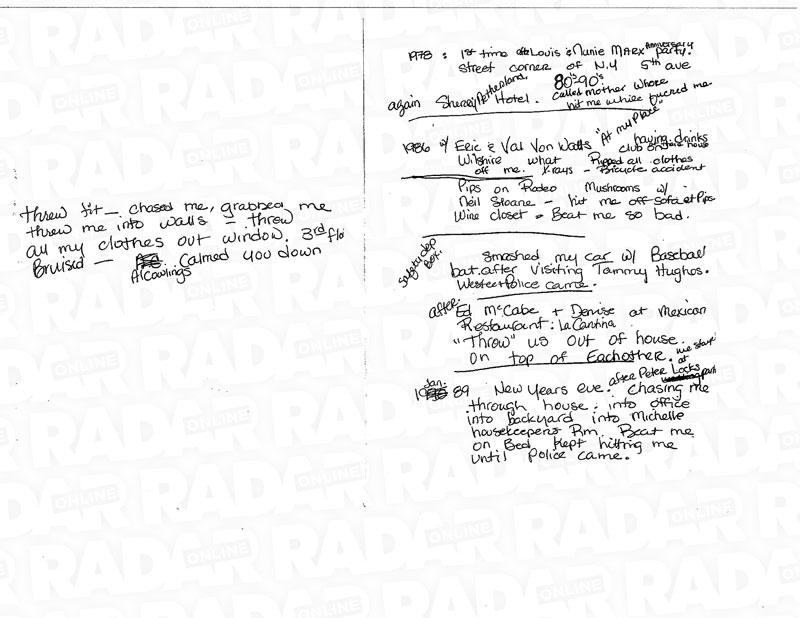 threw fit — chased me, grabbed me
threw me into walls — threw
all my clothes out window. 3rd flo
Bruised — calmed you down
Al Cowlings
1978 : 1st time Louis & Nunie Marx Anniversary party.
street corner of N.Y 5th ave
again Sherry Netherland Hotel. 80's-90's called mother whore
hit me while fucked me
1986 w/ Eric & Val Von Watts "At my Place" having drinks
Wilshire what club on
Ripped all clothes
off me. X-rays — Bicycle accident
Pips on Rodeo Mushrooms w/
Neil Sloane — hit me off sofa at Pips
Wine closet — Beat me so bad.
Safety dep
Box.
smashed my car w/ Baseball
bat after visiting Tammy Hughos.
Westec + Police came.
after: Ed McCabe + Denise at Mexican
Restaurant: La Cantina
"Threw" us out of house.
on top of Eachother.
Jan.
1989 New Years eve. after Peter Locks party
Chasing me
through house. into office
into Backyard into Michelle
housekeepers Rm. Beat me
on Bed Kept hitting me
until Police came.
RADAR ONLINE